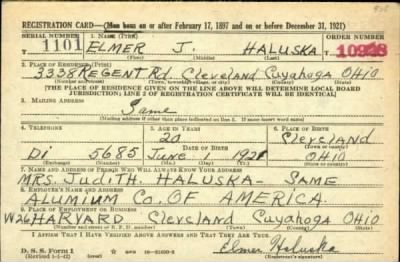 REGISTRATION CARD—(Men born on or after February 17, 1897 and on or before December 31, 1921)
SERIAL NUMBER 1. NAME (Print) ORDER NUMBER
1101 ELMER J. HALUSKA
(First) (Middle) (Last)
2. PLACE OF RESIDENCE (Print)
3338 REGENT Rd. Cleveland Cuyahoga OHIO
(Number and street) (Town, township, village, or city) (County) (State)
[THE PLACE OF RESIDENCE GIVEN ON THE LINE ABOVE WILL DETERMINE LOCAL BOARD
JURISDICTION; LINE 2 OF REGISTRATION CERTIFICATE WILL BE IDENTICAL]
3. MAILING ADDRESS
Same
(Mailing address if other than place indicated on line 2. If same insert word same)
4. TELEPHONE 5. AGE IN YEARS 6. PLACE OF BIRTH
20 Cleveland
DATE OF BIRTH (Town or county)
Di 5685 June 1921 OHIO
(Exchange) (Number) (Mo.) (Day) (Yr.) (State or country)
7. NAME AND ADDRESS OF PERSON WHO WILL ALWAYS KNOW YOUR ADDRESS
MRS. JUDITH. HALUSKA- SAME
8. EMPLOYER'S NAME AND ADDRESS
ALUMIUM Co. OF AMERICA.
9. PLACE OF EMPLOYMENT OR BUSINESS
HARVARD Cleveland Cuyahoga OHIO
(Number and street or R. F. D. number) (Town) (County) (State)
I AFFIRM THAT I HAVE VERIFIED ABOVE ANSWERS AND THAT THEY ARE TRUE.
D. S. S. Form 1
(Revised 1-1-42) (over) Elmer Haluska
(Registrant's signature)